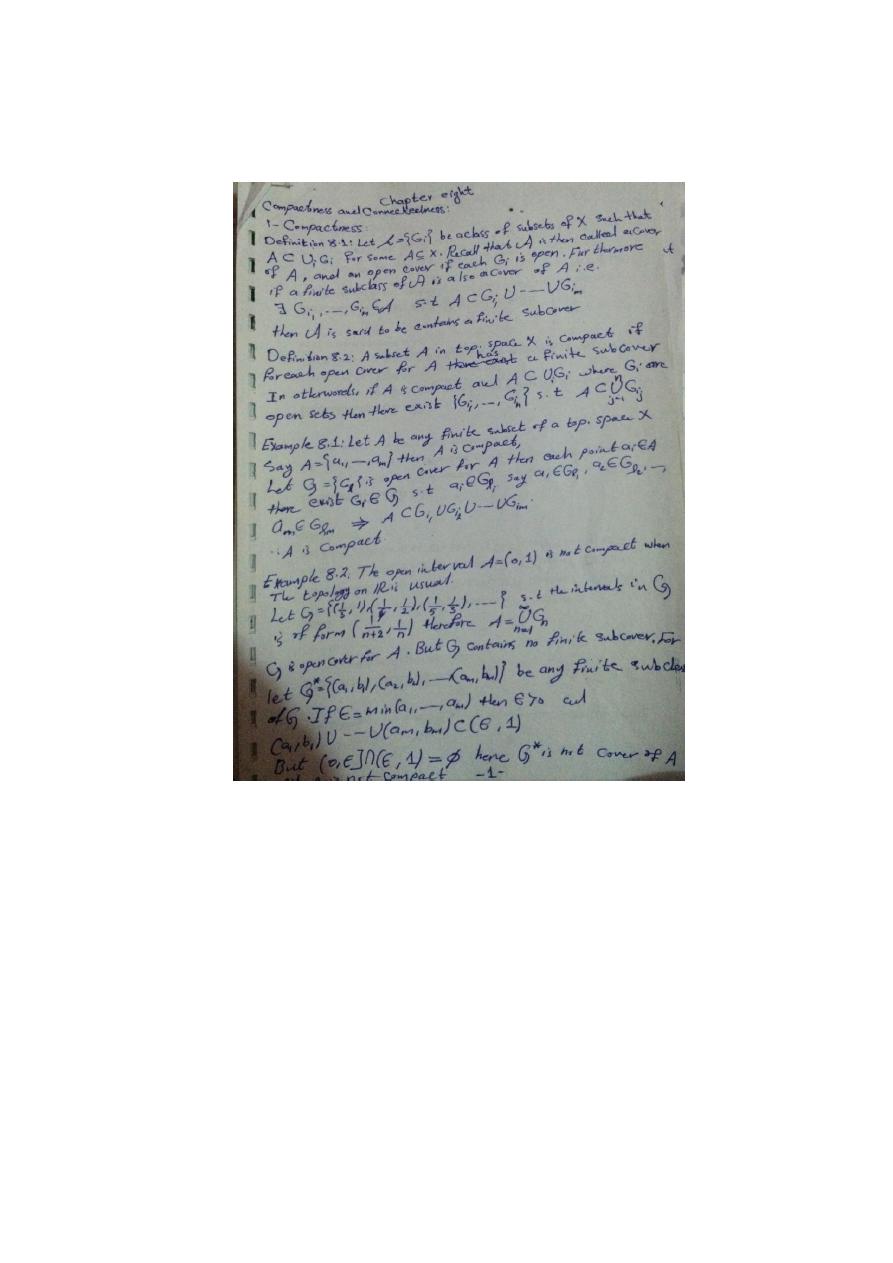 Chapter eight
Compactness and Connectedness:
1- Compactness:
Definition 8.1: Let 𝒜={Gi} be a class of subsets of X such that
A ⊂ ∪i Gi for some A ⊆ X. Recall that 𝒜 is then called a cover
of A, and an open cover if each Gi is open. Furthermore
if a finite subclass of 𝒜 is also a cover of A i.e.
∃ Gi1, ---, Gim ∈ 𝒜 s.t A ⊂ Gi1 ∪ --- ∪ Gim
then 𝒜 is said to be contains a finite subcover
Definition 8.2: A subset A in top. space X is compact if
for each open cover for A has a finite subcover
In otherwords, if A is compact and A ⊂ ∪i Gi where Gi are
open sets then there exist {Gi1, ---, Gin} s.t A ⊂ ∪ⁿj=1 Gij
Example 8.1: Let A be any finite subset of a top. space X
Say A={a1, ---, am} then A is compact,
Let G = {Gi} is open cover for A then each point ai ∈ A
there exist Gi ∈ G s.t ai ∈ Gli say a1 ∈ Gl1, a2 ∈ Gl2, --,
am ∈ Glm ⇒ A ⊂ Gi1 ∪ Gi2 ∪ --- ∪ Gim.
∴ A is compact.
Example 8.2. The open interval A=(0,1) is not compact when
The topology on IR is usual.
Let G = {(1/3, 1), (1/4, 1/2), (1/5, 1/3), ----} s.t the intervals in G
is of form (1/n+2, 1/n) therefore A = ∪n=1 Gn
G is open cover for A. But G contains no finite subcover. For
let G*={(a1,b1), (a2,b2), ---(am,bm)} be any finite subclass
of G. If ∈ = min(a1, ---, am) then ∈ > 0 and
(a1,b1) ∪ --- ∪ (am,bm) ⊂ (∈, 1)
But (0,∈] ∩ (∈, 1) = ∅ hence G* is not cover of A
is not compact -1-